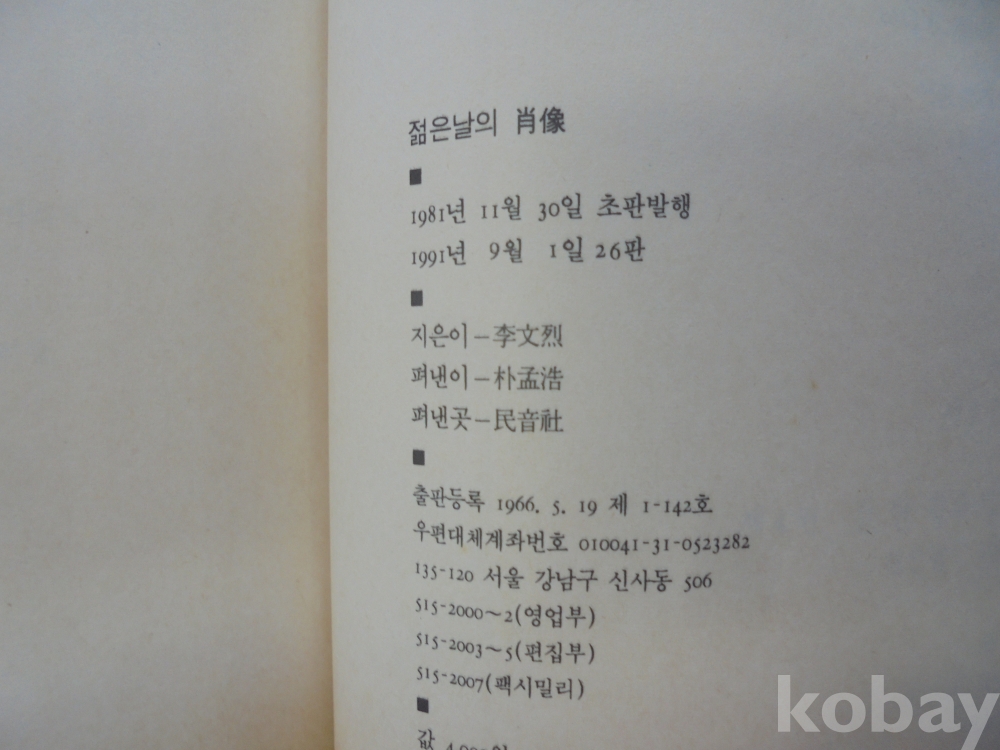 젊은날의 肖像
■
1981년 11월 30일 초판발행
1991년 9월 1일 26판
■
지은이－李文烈
펴낸이－朴孟浩
펴낸곳－民音社
■
출판등록 1966. 5. 19 제 1-142호
우편대체계좌번호 010041-31-0523282
135-120 서울 강남구 신사동 506
515-2000～2(영업부)
515-2003～5(편집부)
515-2007(팩시밀리)
■
값
kobay